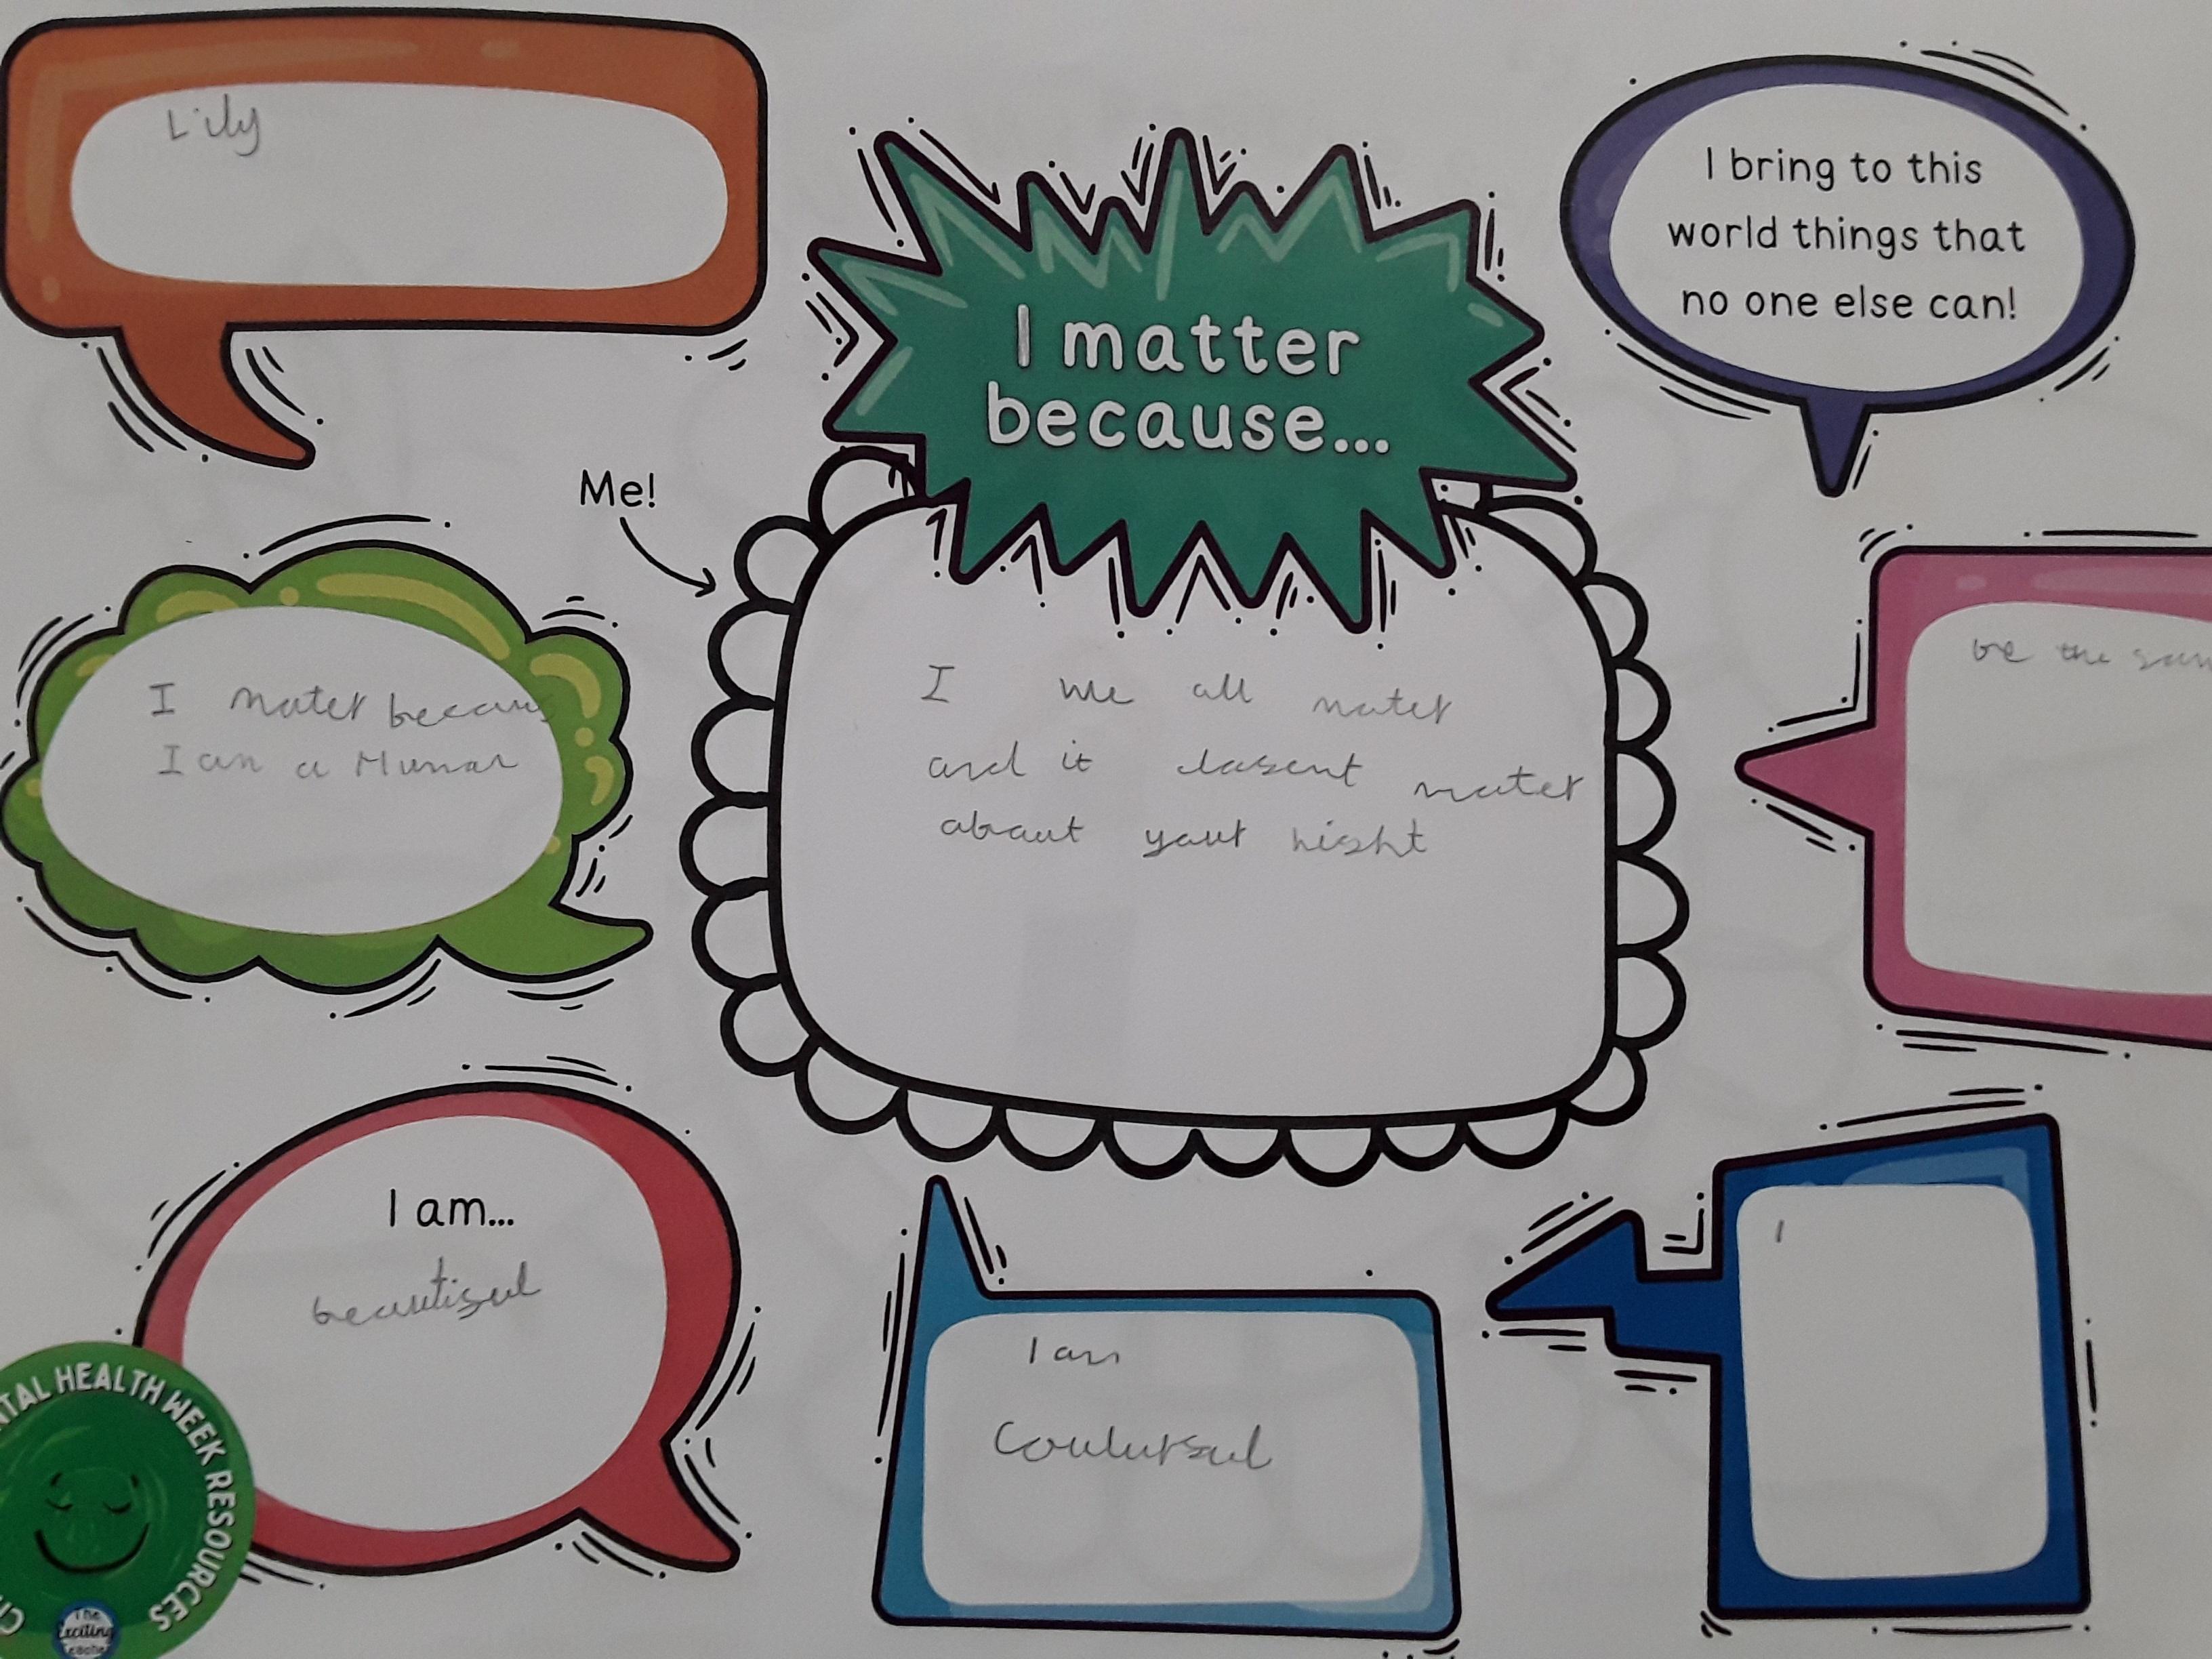 Lily
I matter
because...
I bring to this
world things that
no one else can!
Me!
I mater becaus
I am a Human
I we all mater
and it dasent mater
abaut yaur hight
be the sam
I am...
beautiful
I am
Coulurful
I
MENTAL HEALTH WEEK RESOURCES
The
Exciting
Teacher